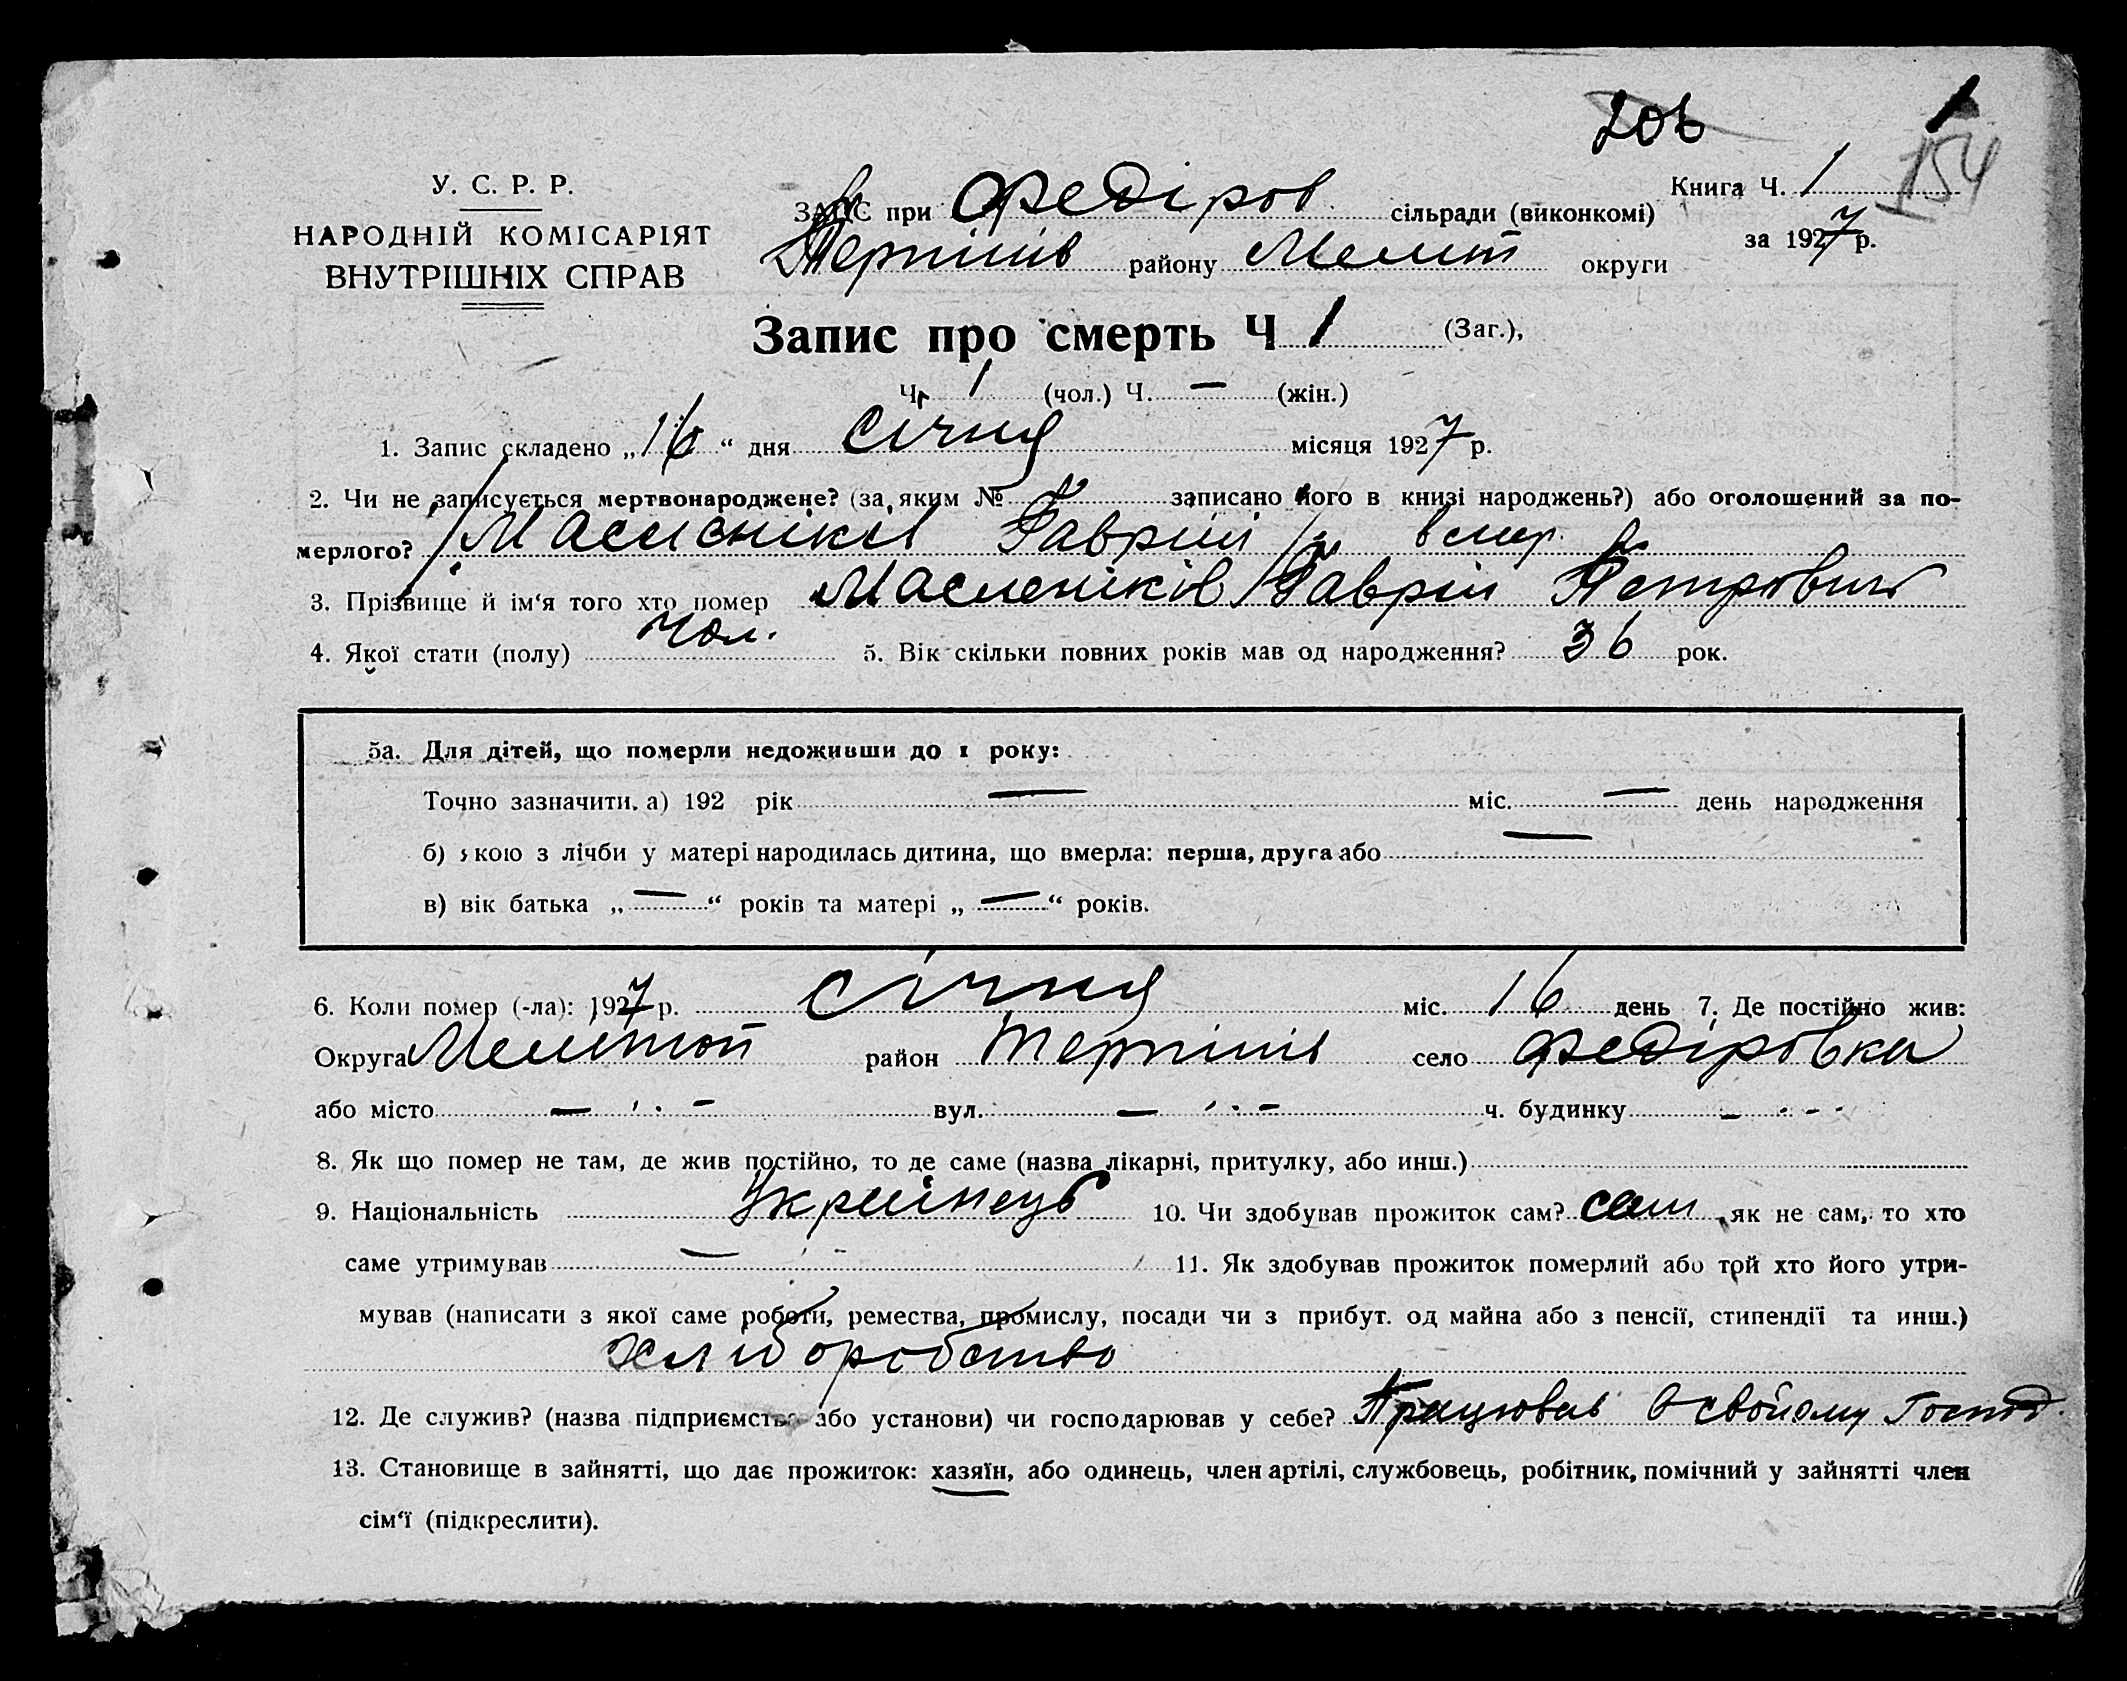 206 1
154
У. С. Р. Р.
НАРОДНІЙ КОМІСАРІЯТ
ВНУТРІШНІХ СПРАВ
ЗАПС при Федіров сільради (виконкомі)
Книга Ч. 1
Терпінів району Меліт округи
за 1927 р.
Запис про смерть Ч 1 (Заг.),
Ч. 1 (чол.) Ч. — (жін.)
1. Запис складено „16“ дня січня місяця 1927 р.
2. Чи не записується мертвонароджене? (за яким № записано його в книзі народжень?) або оголошений за по-
мерлого? Гаврііл вмер.
3. Прізвище й ім‘я того хто помер Масленіків Гавріїл Петрович
4. Якої стати (полу) Чол. 5. Вік скільки повних років мав од народження? 36 рок.
5а. Для дітей, що померли недоживши до 1 року:
Точно зазначити. а) 192 рік — міс. — день народження
б) якою з лічби у матері народилась дитина, що вмерла: перша, друга або —
в) вік батька „—“ років та матері „—“ років.
6. Коли помер (-ла): 1927 р. січня міс. 16 день 7. Де постійно жив:
Округа Мелітоп район Терпінів село Федіровка
або місто — вул. — ч. будинку —
8. Як що помер не там, де жив постійно, то де саме (назва лікарні, притулку, або инш.)
9. Національність Україінець 10. Чи здобував прожиток сам? сам як не сам, то хто
саме утримував — 11. Як здобував прожиток померлий або той хто його утри-
мував (написати з якої саме роботи, ремества, промислу, посади чи з прибут. од майна або з пенсії, стипендії та инш.)
Хліборобство
12. Де служив? (назва підприємства або установи) чи господарював у себе? Працював в свойому Господ.
13. Становище в зайнятті, що дає прожиток: хазяїн, або одинець, член артілі, службовець, робітник, помічний у зайнятті член
сім‘ї (підкреслити).